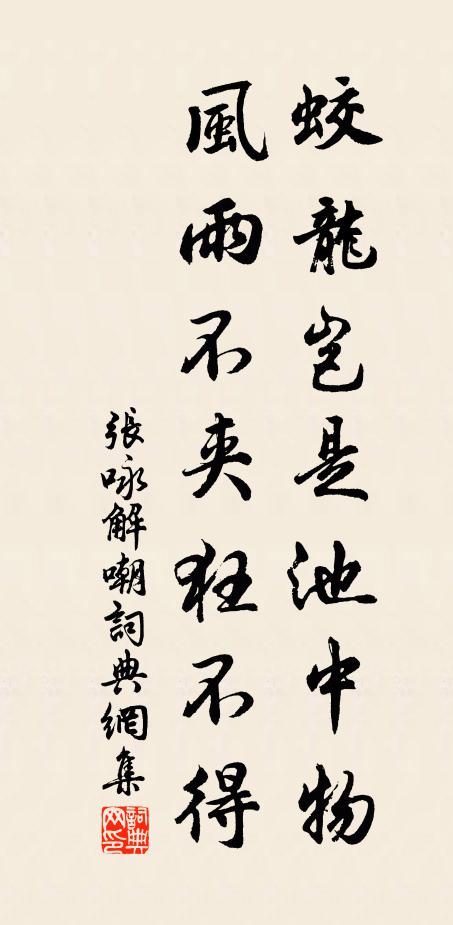 蛟龍豈是池中物
風雨不夹狂不得
張咏解嘲詞典網集
詞典网印